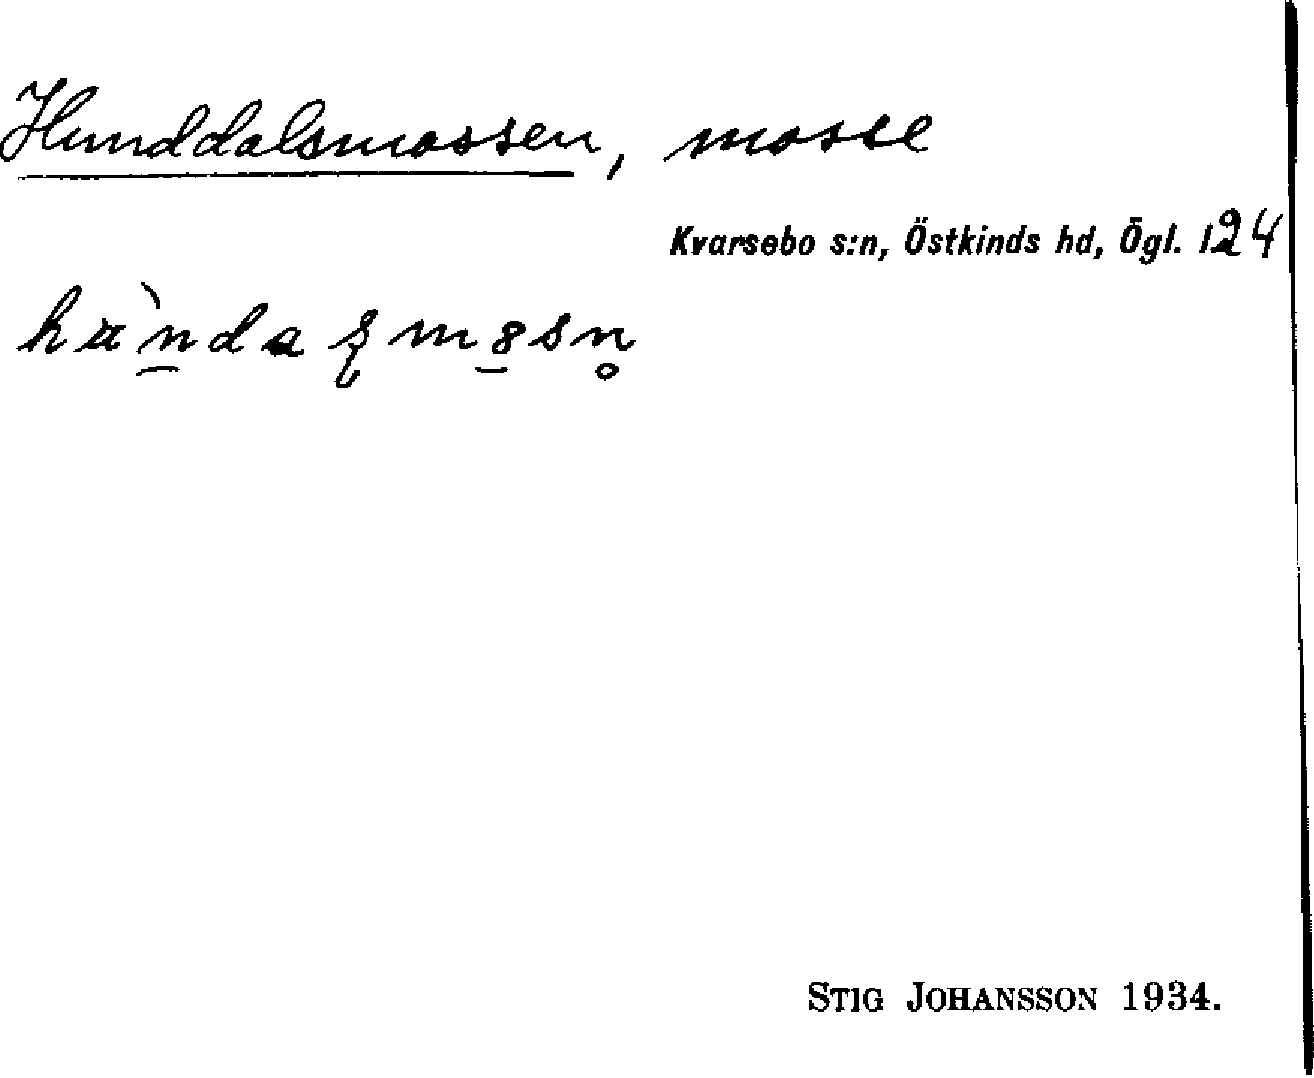 Hunddalsmossen, mosse
Kvarsebo s:n, Östkinds hd, Ögl. 124
STIG JOHANSSON 1934.